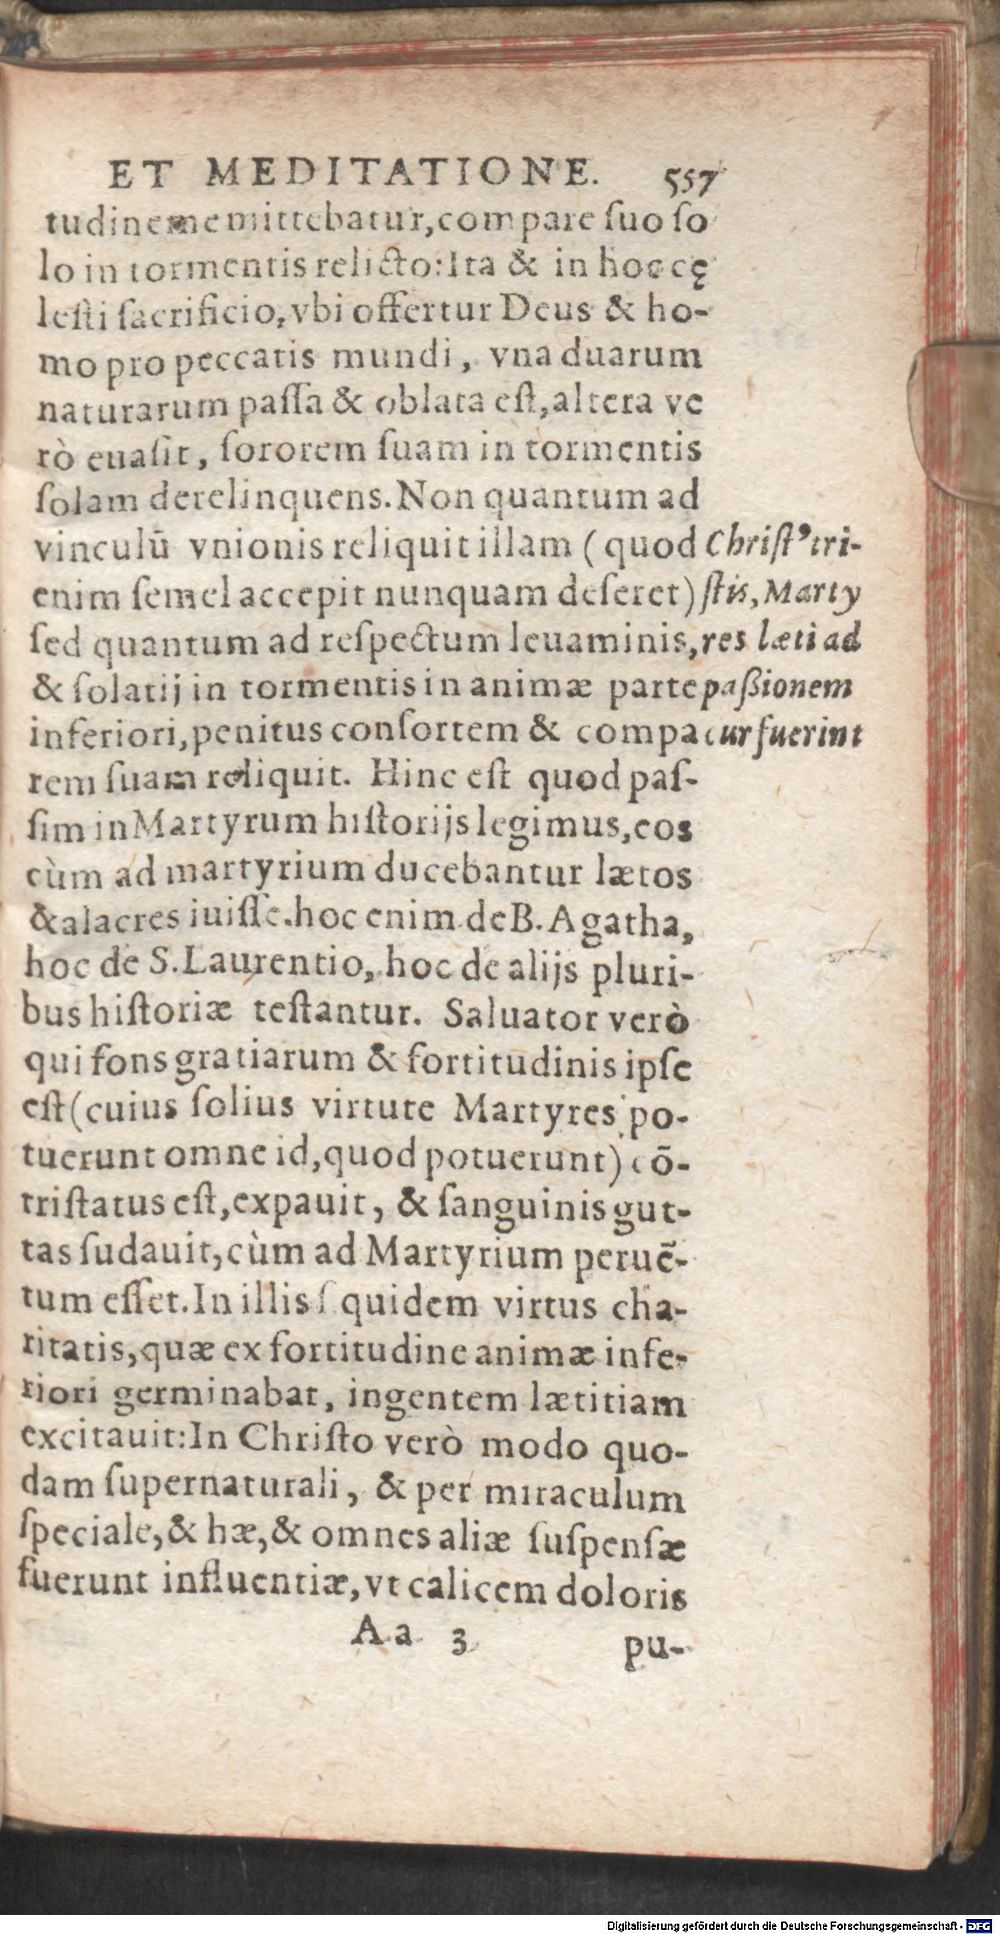 ET MEDITATIONE. 557
tudinem emittebatur, compare suo so
lo in tormentis relicto: Ita & in hoc cę
lesti sacrificio, vbi offertur Deus & ho-
mo pro peccatis mundi, vna duarum
naturarum passa & oblata est, altera ve
rò euasit, sororem suam in tormentis
solam derelinquens. Non quantum ad
vinculū vnionis reliquit illam ( quod
enim semel accepit nunquam deseret)
sed quantum ad respectum leuaminis,
& solatij in tormentis in animæ parte
inferiori, penitus consortem & compa
rem suam reliquit. Hinc est quod pas-
sim in Martyrum historijs legimus, eos
cùm ad martyrium ducebantur lætos
& alacres iuisse. hoc enim de B. Agatha,
hoc de S. Laurentio, hoc de alijs pluri-
bus historiæ testantur. Saluator verò
qui fons gratiarum & fortitudinis ipse
est (cuius solius virtute Martyres po-
tuerunt omne id, quod potuerunt) cō-
tristatus est, expauit, & sanguinis gut-
tas sudauit, cùm ad Martyrium peruē-
tum esset. In illis squidem virtus cha-
ritatis, quæ ex fortitudine animæ infe-
riori germinabat, ingentem lætitiam
excitauit: In Christo verò modo quo-
dam supernaturali, & per miraculum
speciale, & hæ, & omnes aliæ suspensæ
fuerunt influentiæ, vt calicem doloris
Aa 3 pu-
Christ⁹ tri-
stis, Marty
res læti ad
passionem
cur fuerint
Digitalisierung gefördert durch die Deutsche Forschungsgemeinschaft - DFG